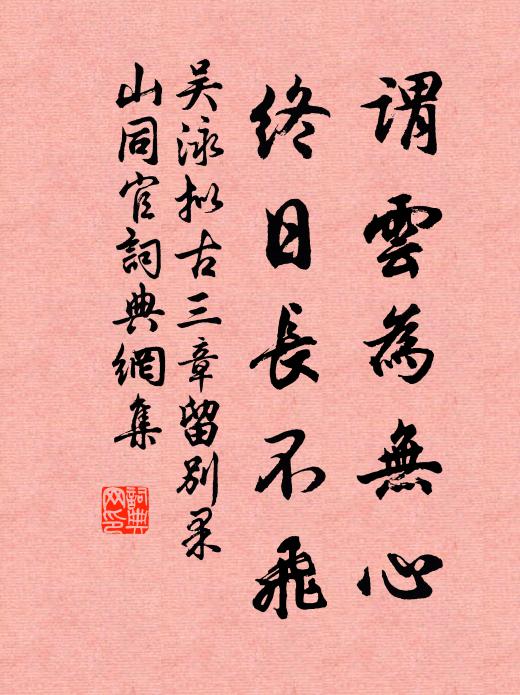 謂雲為無心
終日長不飛
吴泳拟古三章留别果
山同官詞典網集
詞典
网印